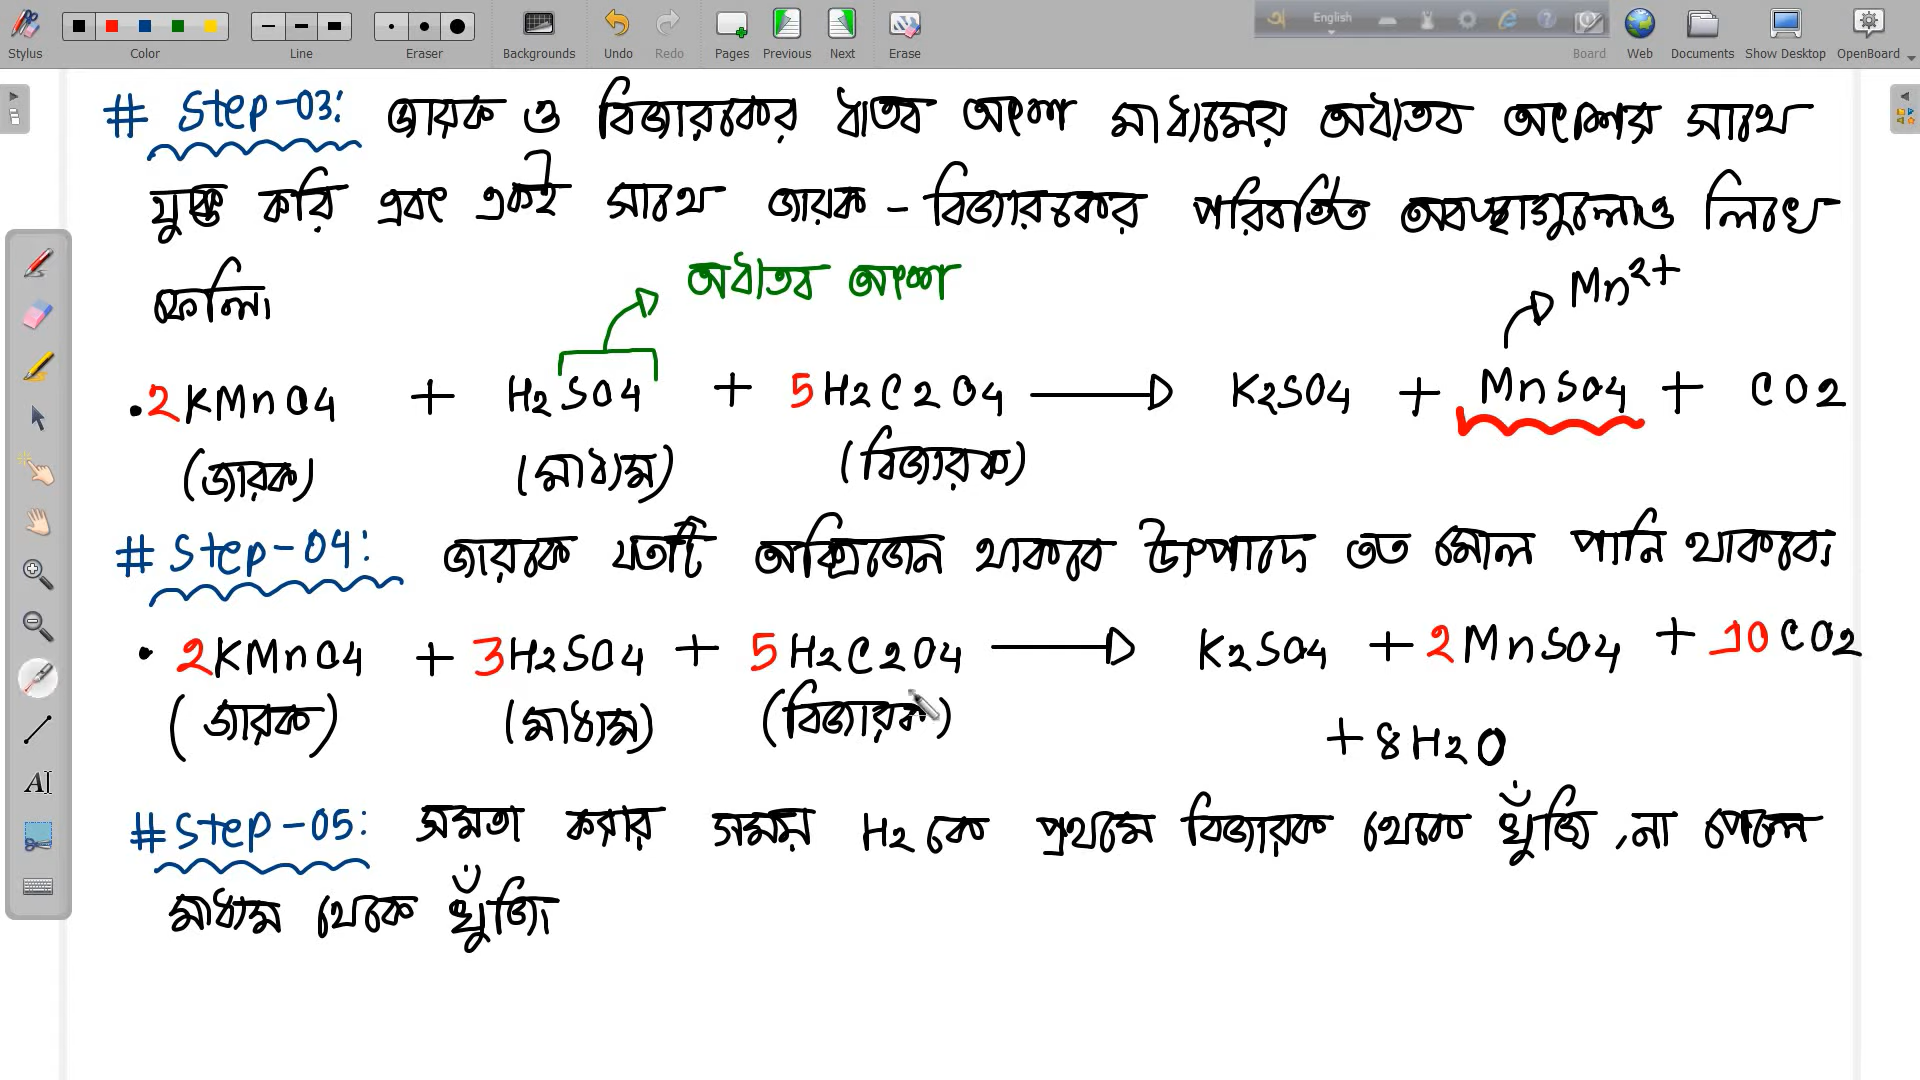 Stylus Color Line Eraser Backgrounds Undo Redo Pages Previous Next Erase English Board Web Documents Show Desktop OpenBoard
# Step-03: জারক ও বিজারকের ধাতব অংশ মাধ্যমের অধাতব অংশের সাথে
যুক্ত করি এবং একই সাথে জারক-বিজারকের পরিবর্তিত অবস্থাগুলোও লিখে
ফেলি।
অধাতব অংশ
Mn2+
2KMnO4 + H2SO4 + 5H2C2O4 → K2SO4 + MnSO4 + CO2
(জারক) (মাধ্যম) (বিজারক)
# Step-04: জারকে যতটি অক্সিজেন থাকবে উৎপাদে তত মোল পানি থাকবে।
2KMnO4 + 3H2SO4 + 5H2C2O4 → K2SO4 + 2MnSO4 + 10CO2
(জারক) (মাধ্যম) (বিজারক)
+ 8H2O
# Step-05: সমতা করার সময় H2 কে প্রথমে বিজারক থেকে খুঁজি, না পেলে
মাধ্যম থেকে খুঁজি।
AI